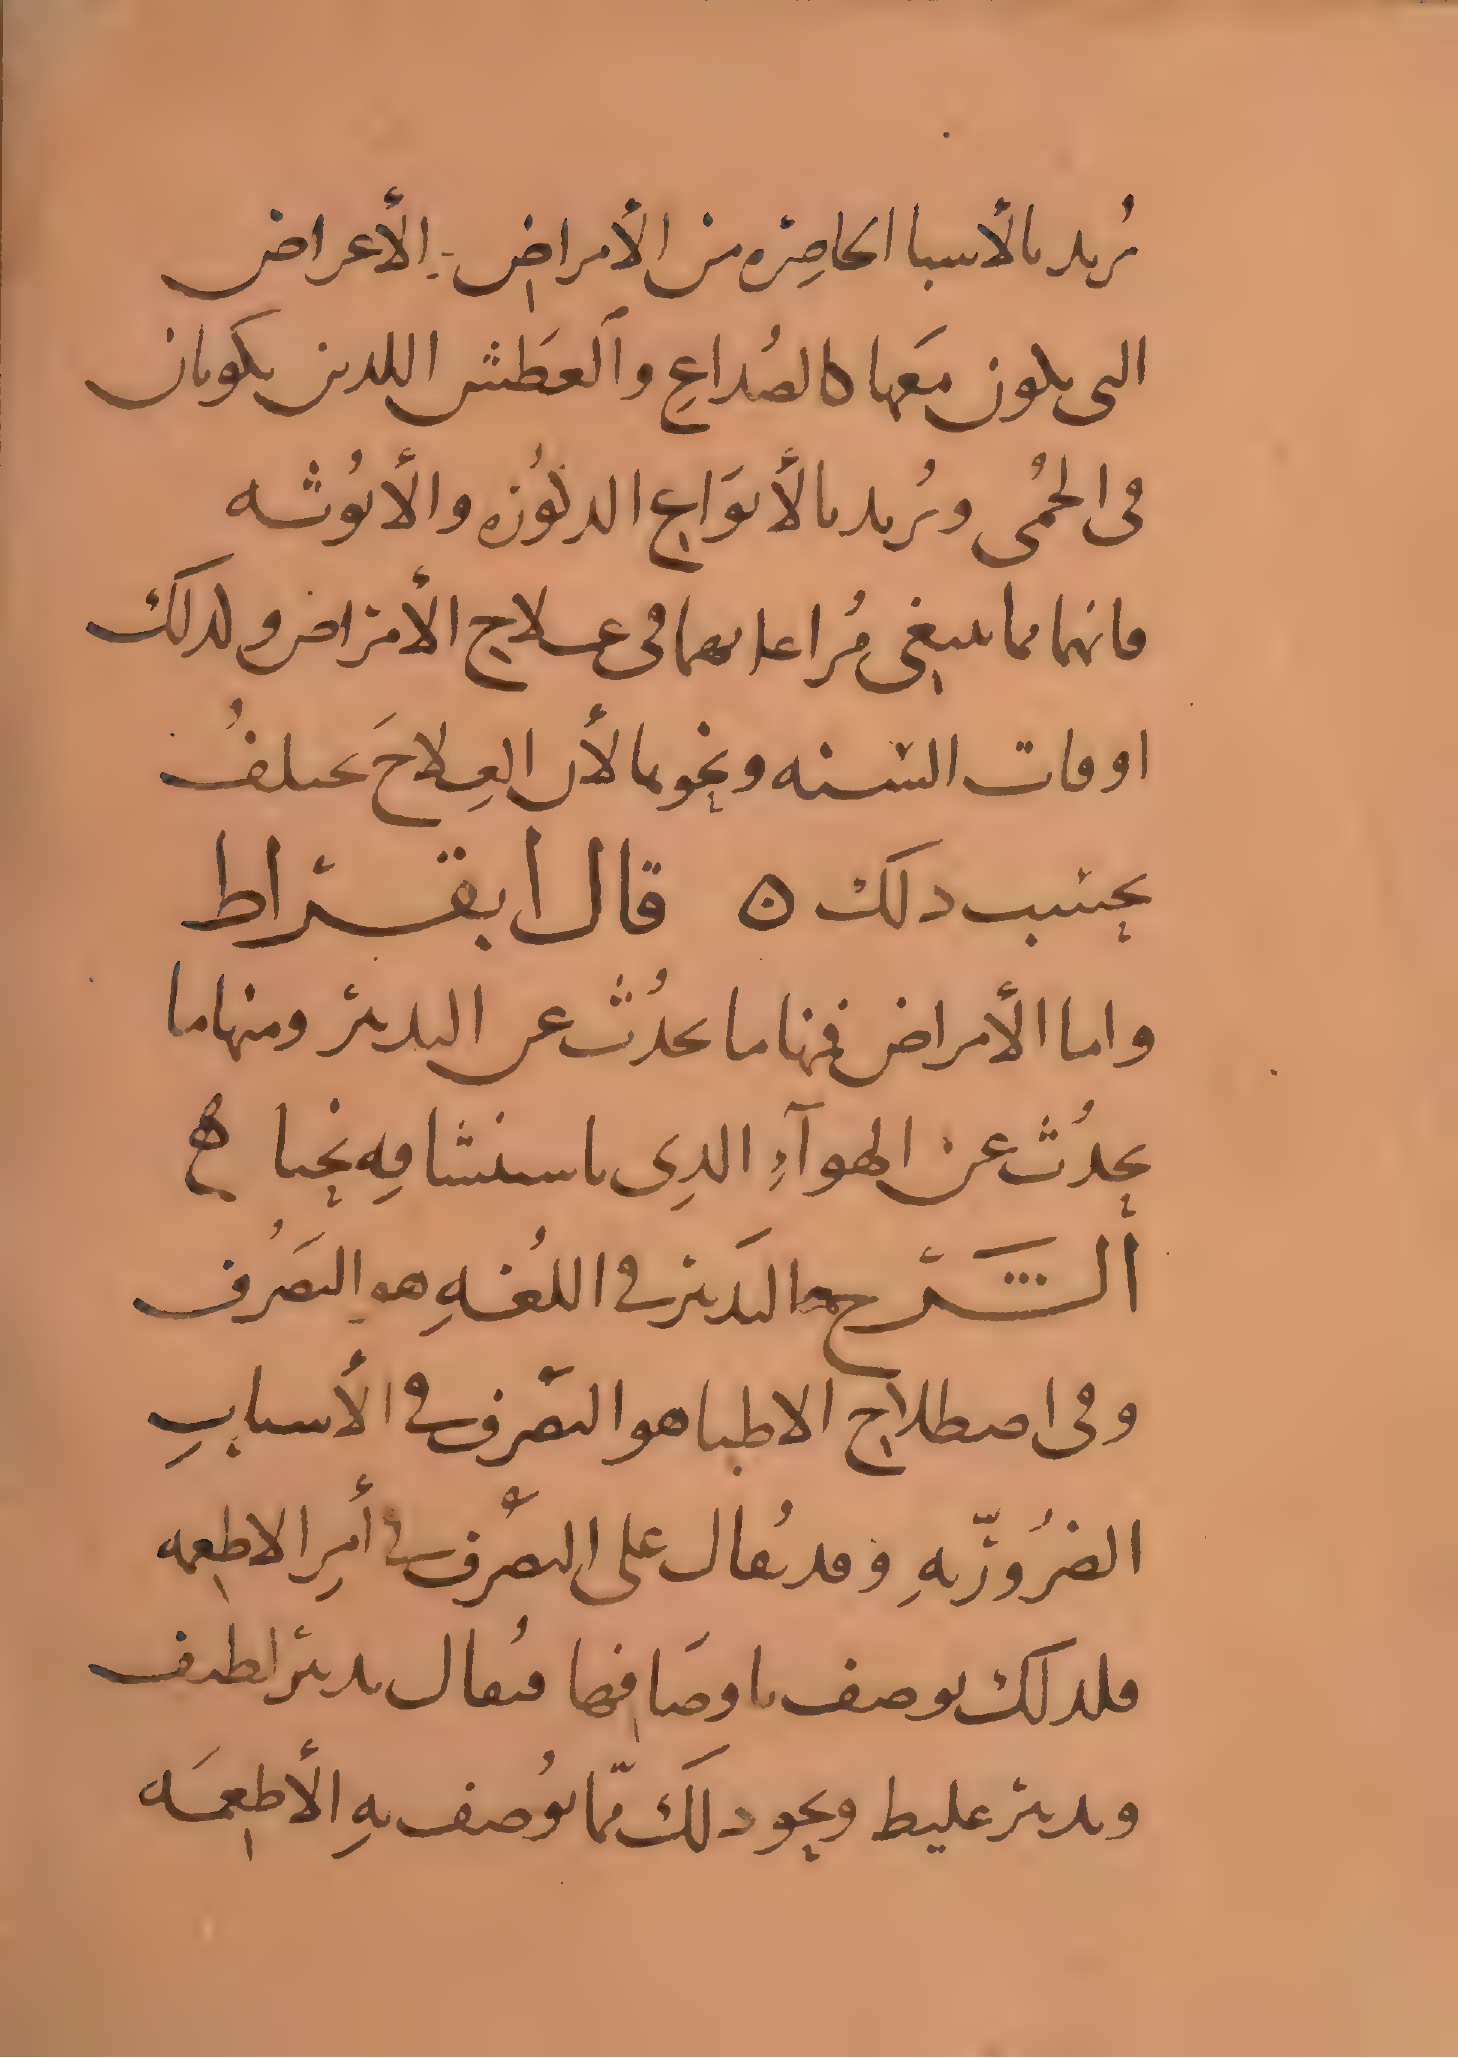 نُريد بالأسبا الحاضِره من الأمراض الأعراض
التى يكون مَعها كالصُداعِ والعطَش اللدين يكونان
فى الحُمى ونُريد بالأنوَاع الدكُوره والأنُوثه
فانهما مما ينبغى مُراعاتهما فى علاج الأمراض ولدلك
اوقات السنه ونحوها لأن العِلاجَ يختلفُ
بحسب دلك ه قال ابقراط
واما الأمراض فمنها ما يحدُث عن التدبير ومنها ما
يحدُث عن الهوآءِ الدِى باستنشاقِه نحيا ه
الشرح التدَبير فى اللُغهِ هو التصَرُف
وفى اصطلاح الاطبا هو التصَرف فى الأسبابِ
الضرُوريّهِ وقد يُقال على التصرُّف فى أمرِ الاطعمه
فلدلك يوصف باوصَافها فيُقال تدبير لطيف
وتدبير غليظ ونحو دلكَ ممّا يُوصف بهِ الأطعمَه